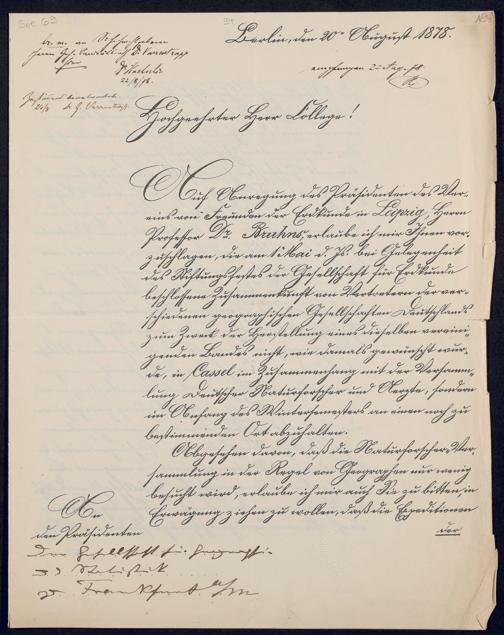 Berlin, den 20ten August 1878.
empfangen 22 Aug. 78.
22/8/78.
Hochgeehrter Herr College!
Auf Anregung des Präsidenten des Ver-
eins von Freunden der Erdkunde in Leipzig, Herrn
Professor Dr. Bruhns, erlaube ich mir Ihnen vor-
zuschlagen, die am 1 Mai d. Js. bei Gelegenheit
des Stiftungsfestes der Gesellschaft für Erdkunde
beschlossene Zusammenkunft von Vertretern der ver-
schiedenen geographischen Gesellschaften Deutschlands
zum Zweck der Herstellung eines dieselben vereini-
genden Bandes nicht, wie damals gewünscht wur-
de, in Cassel im Zusammenhang mit der Versamm-
lung Deutscher Naturforscher und Aerzte, sondern
im Anfang des Wintersemesters an einem noch zu
bestimmenden Ort abzuhalten.
Abgesehen davon, daß die Naturforscher-Ver-
sammlung in der Regel von Geographen nur wenig
besucht wird, erlaube ich mir auch Sie zu bitten, in
Erwägung ziehen zu wollen, daß die Expeditionen
der
An
den Präsidenten
der Gesellschaft für Geographie
und Statistik
zu Frankfurt a/m